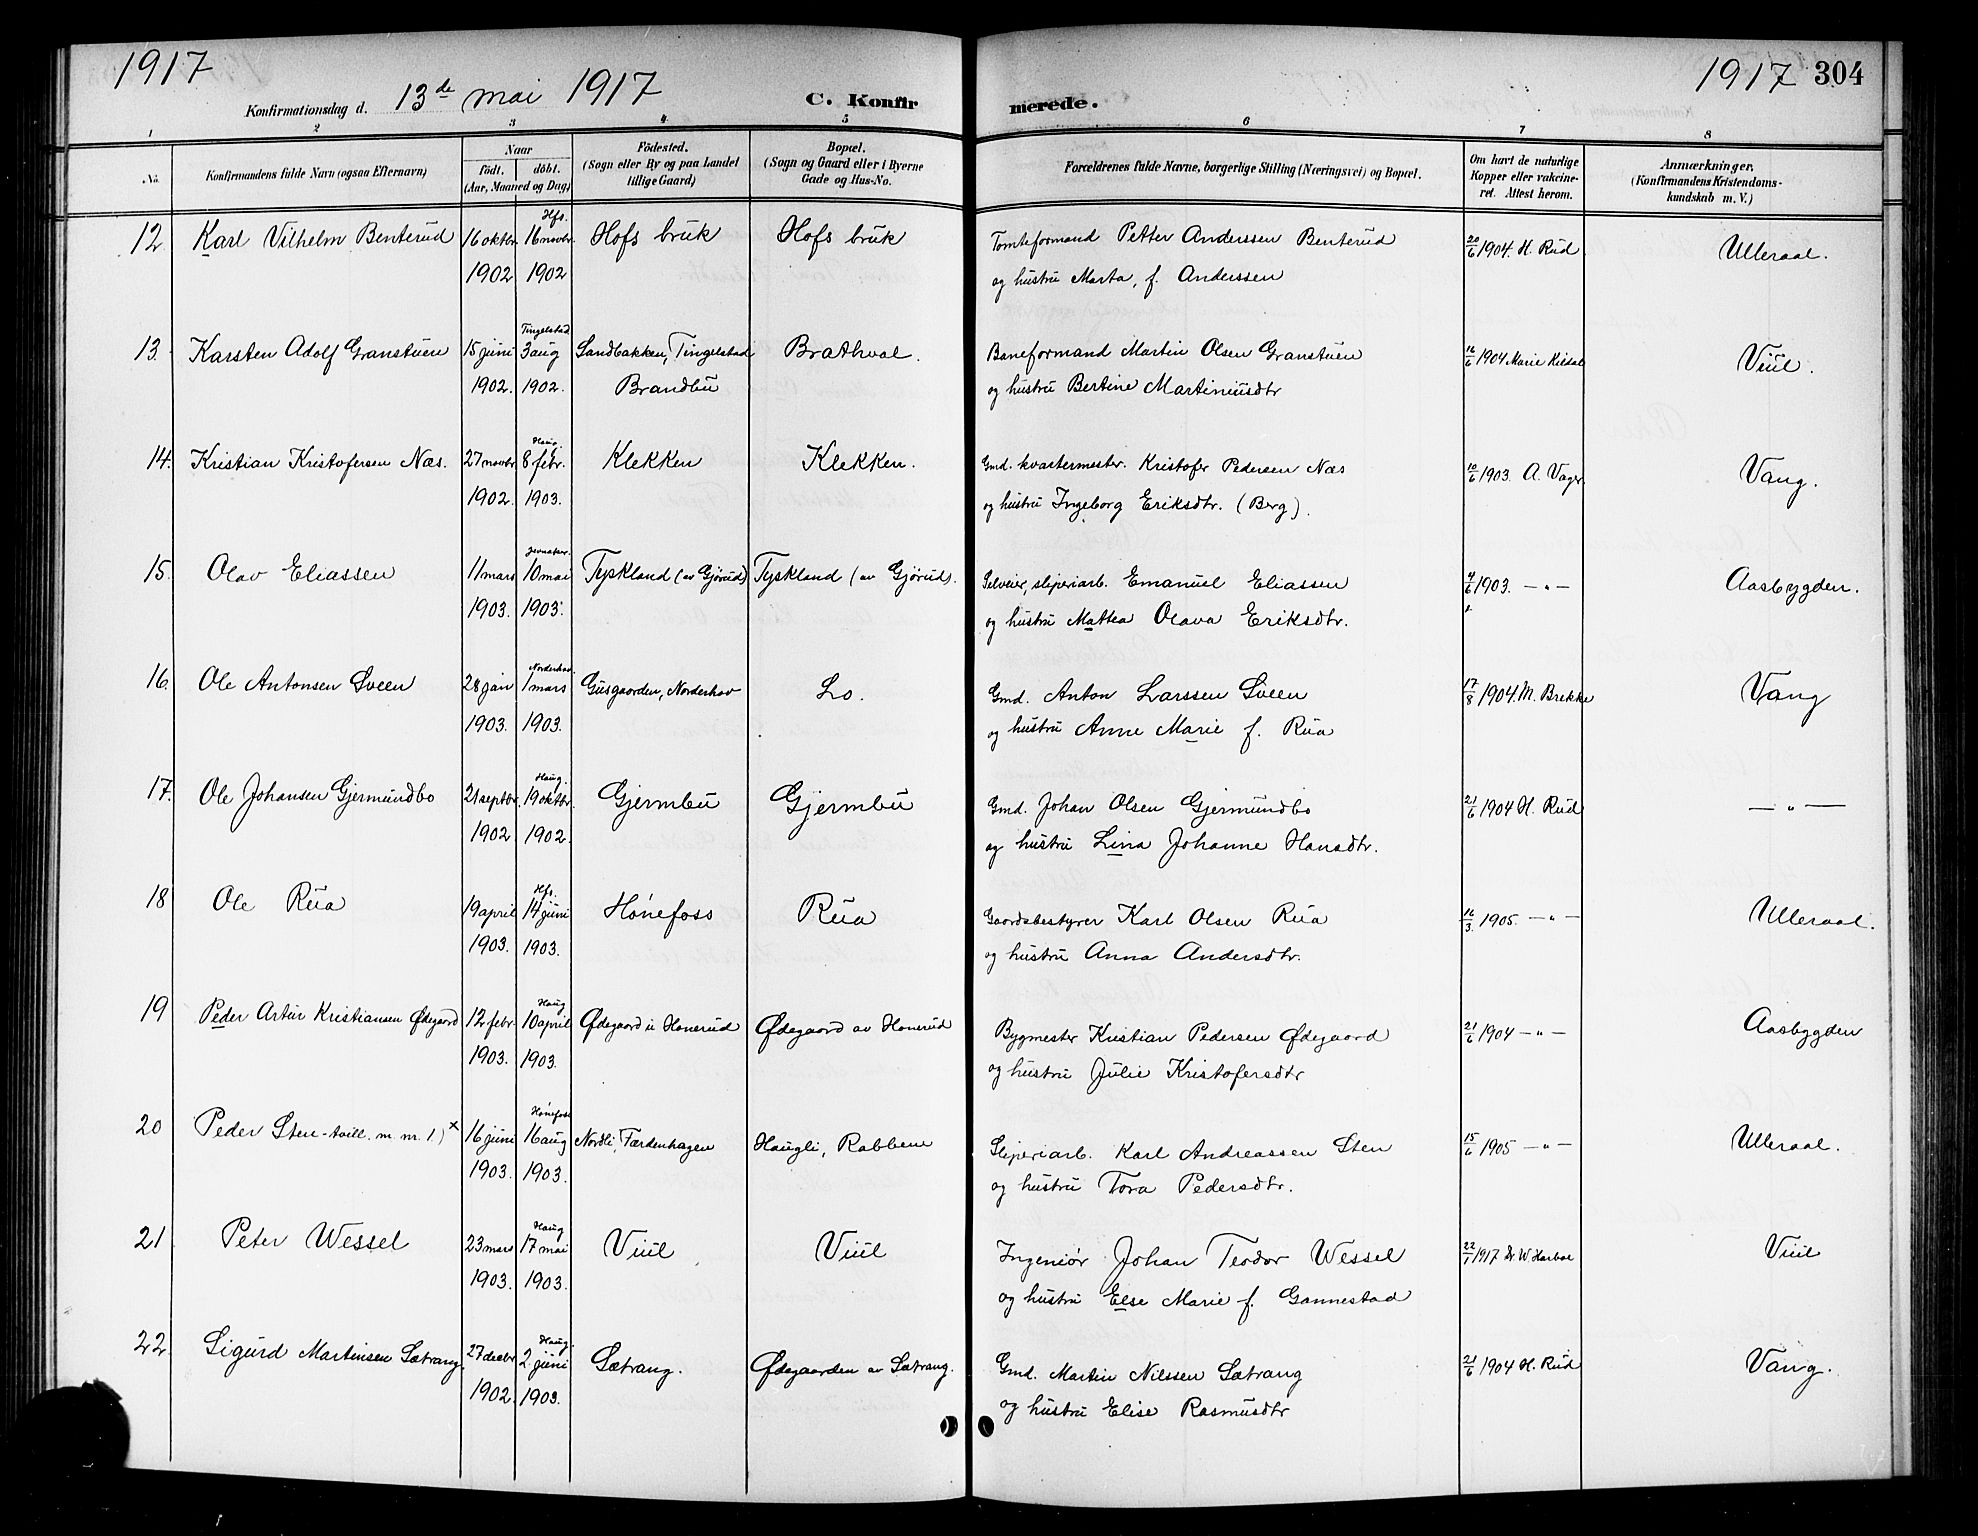 1917
1917 304
Konfirmationsdag d. 13de mai 1917
C. Konfirmerede.
1 2 3 4 5 6 7 8
No.
Konfirmandens fulde Navn (ogsaa Efternavn)
Naar
født. døbt.
(Aar, Maaned og Dag)
Födested.
(Sogn eller By og paa Landet
tillige Gaard)
Bopæl.
(Sogn og Gaard eller i Byerne
Gade og Hus-No.
Forældrenes fulde Navne, borgerlige Stilling (Næringsvei) og Bopæl.
Om havt de naturlige
Kopper eller vakcine-
ret. Attest herom.
Anmærkninger.
(Konfirmandens Kristendoms-
kundskab m. V.)
Hfs.
12. Karl Vilhelm Benterud 16 oktbr. 16 novbr. Hofs bruk Hofs bruk Tomteformand Petter Anderssen Benterud 20/6 1904. H. Rud Ulleraal.
1902 1902 og hustru Marta, f. Anderssen
Tingelstad
13. Karsten Adolf Granstuen 15 juni 3 aug Sandbakken, Tingelstad Brathval. Baneformand Martin Olsen Granstuen 16/6 1904 Marie Kildal Viul.
1902. 1902. Brandbu og hustru Bertine Martiniusdtr
Haug
14. Kristian Kristofersen Næs. 27 novbr. 8 febr. Klekken Klekken. Gmd. kvartermester. Kristofer Pedersen Næs 10/6 1903. A. Vager Vang.
1902. 1903. og hustru Ingeborg Eriksdtr. (Berg).
Jevnaker.
15. Olav Eliassen 11 mars 10 mai Tyskland (av Gjørud) Tyskland (av Gjørud). Selveier, sliperiarb. Emanuel Eliassen 4/6 1903. —„— Aasbygden.
1903. 1903. og hustru Mattea Olava Eriksdtr.
Norderhov
16. Ole Antonsen Sveen 28 jan 1 mars Gusgaarden, Norderhov Lo. Gmd. Anton Larssen Sveen 17/8 1904. M. Brekke Vang
1903. 1903. og hustru Anne Marie f. Rua
Haug.
17. Ole Johansen Gjermundbo 21 septbr. 19 oktbr. Gjermbu Gjermbu Gmd. Johan Olsen Gjermundbo 21/6 1904 H. Rud —„—
1902 1902. og hustru Lina Johanne Hansdtr.
Hfs.
18 Ole Rua 19 april 14 juni Hønefoss Rua Gaardsbestyrer Karl Olsen Rua 16/3 1905. —„— Ulleraal.
1903. 1903. og hustru Anna Andersdtr.
Haug
19 Peder Artur Kristiansen Ødegaard 12 febr. 10 april Ødegaard u Honerud Ødegaard av Honerud Bygmester Kristian Pedersen Ødegaard 21/6 1904 —„— Aasbygden
1903. 1903. og hustru Julie Kristofersdtr
Hønefoss
20 Peder Sten - tvill. m. nr. 1.) x 16 juni 16 aug Nordli, Færdenhagen Haugli, Rabben Sliperiarb. Karl Andreassen Sten 15/6 1905 —„— Ulleraal.
1903. 1903. og hustru Tora Pedersdtr.
Haug
21 Peter Wessel 23 mars 17 mai Viul Viul Ingeniør Johan Teodor Wessel 22/1 1917 Dr. W Harboe Viul
1903. 1903. og hustru Else Marie f. Gannestad
Haug
22. Sigurd Martinsen Sætrang. 27 decbr. 2. juni Sætrang. Ødegaarden av Sætrang. Gmd. Martin Nilssen Sætrang 21/6 1904 H. Rud Vang.
1902. 1903. og hustru Elise Rasmusdtr